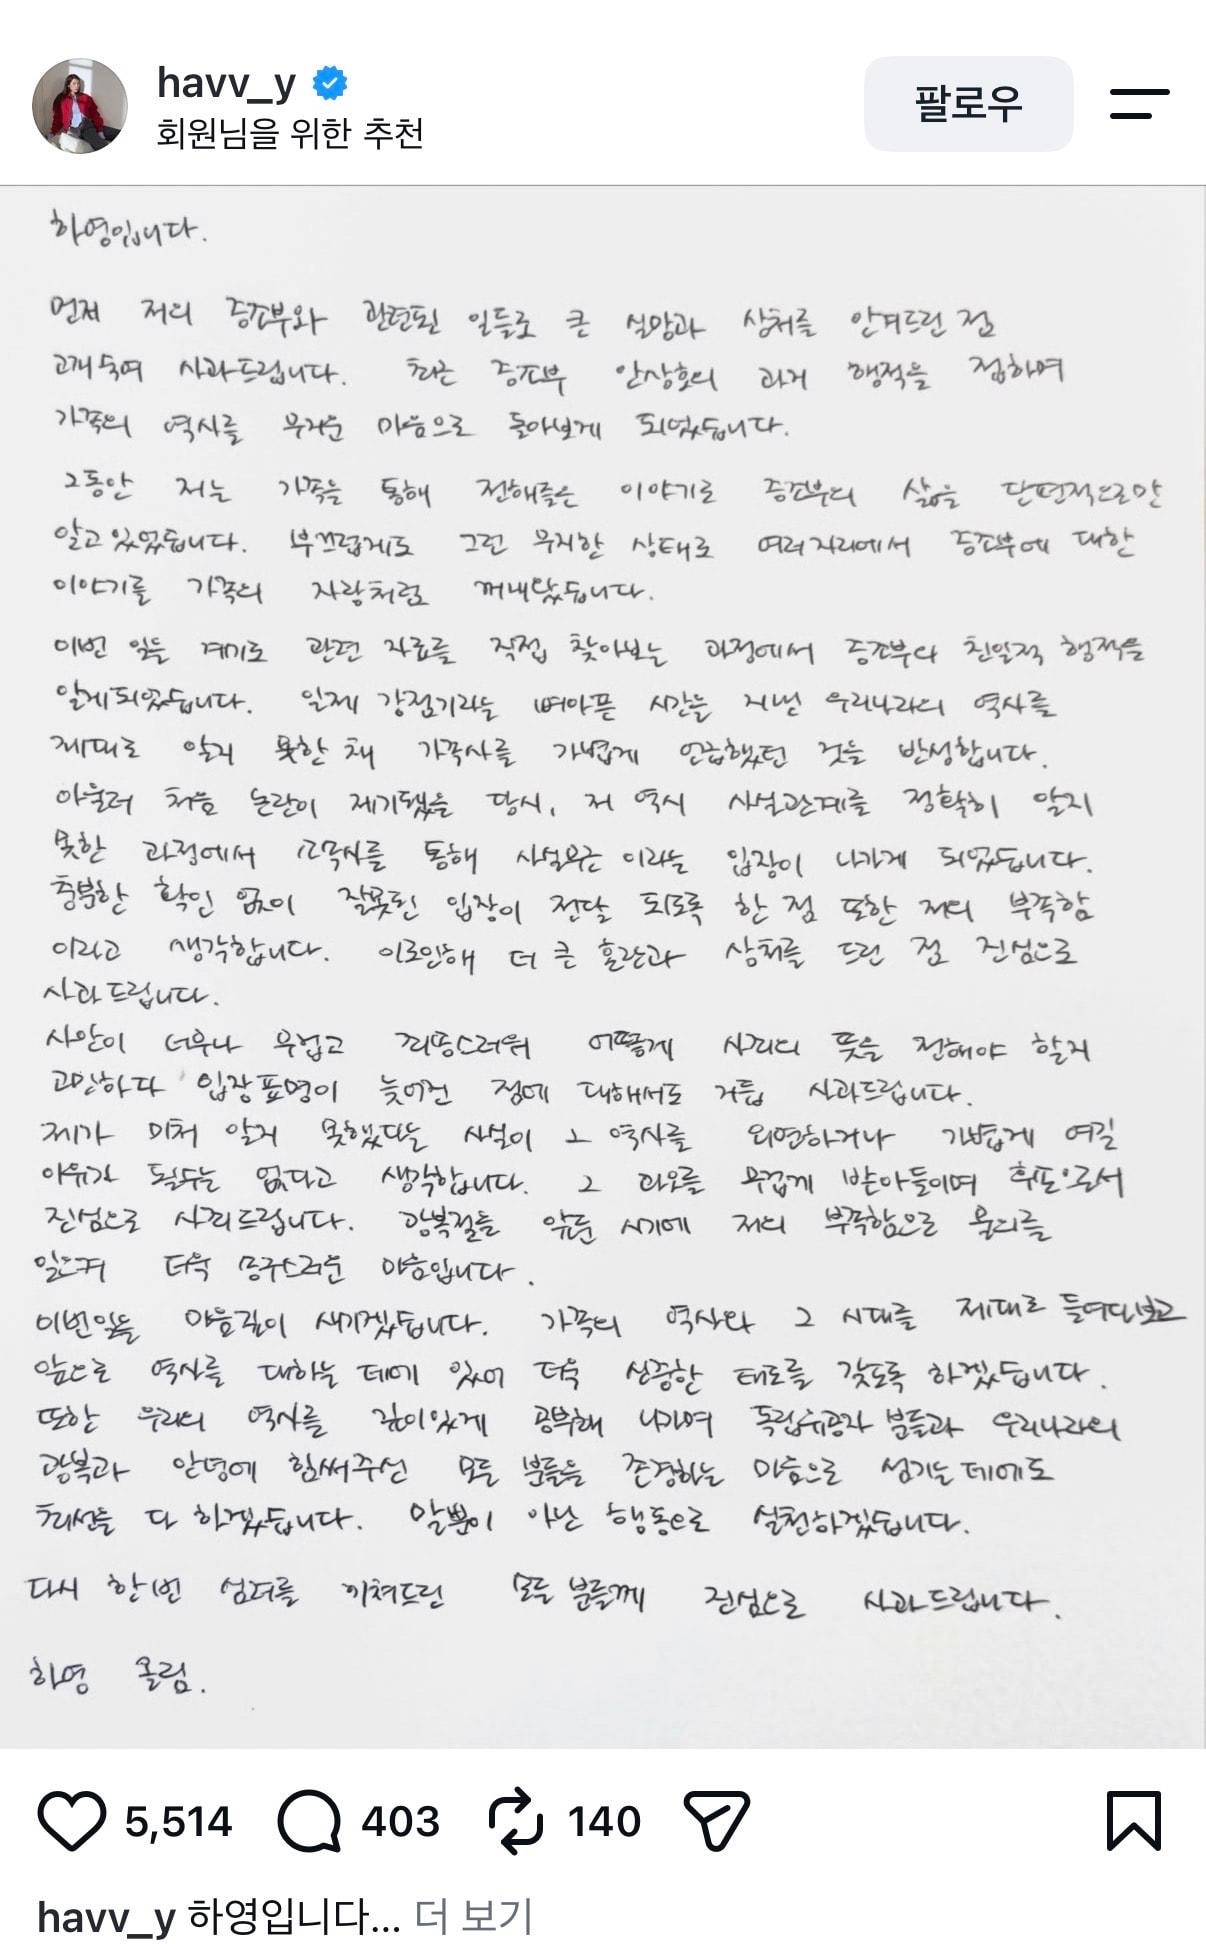 havv_y
회원님을 위한 추천
팔로우
하영입니다.
먼저 저의 증조부와 관련된 일들로 큰 실망과 상처를 안겨드린 점
고개숙여 사과드립니다. 최근 증조부 안상호의 과거 행적을 접하며
가족의 역사를 무거운 마음으로 돌아보게 되었습니다.
그동안 저는 가족을 통해 전해들은 이야기로 증조부의 삶을 단편적으로만
알고있었습니다. 부끄럽게도 그런 무지한 상태로 여러자리에서 증조부에 대한
이야기를 가족의 자랑처럼 꺼내왔습니다.
이번 일을 계기로 관련 자료를 직접 찾아보는 과정에서 증조부의 친일적 행적을
알게되었습니다. 일제 강점기라는 뼈아픈 시간을 지낸 우리나라의 역사를
제대로 알지 못한 채 가족사를 가볍게 언급했던 것을 반성합니다.
아울러 처음 논란이 제기됐을 당시, 저 역시 사실관계를 정확히 알지
못한 과정에서 소속사를 통해 사실무근 이라는 입장이 나가게 되었습니다.
충분한 확인 없이 잘못된 입장이 전달 되도록 한 점 또한 저의 부족함
이라고 생각합니다. 이로인해 더 큰 혼란과 상처를 드린 점 진심으로
사과드립니다.
사안이 너무나 무겁고 죄송스러워 어떻게 사죄의 뜻을 전해야 할지
고민하다 입장표명이 늦어진 점에 대해서도 거듭 사과드립니다.
제가 미처 알지 못했다는 사실이 그 역사를 외면하거나 가볍게 여길
이유가 될수는 없다고 생각합니다. 그 과오를 무겁게 받아들이며 후손으로서
진심으로 사죄드립니다. 광복절을 앞둔 시기에 저의 부족함으로 물의를
일으켜 더욱 송구스러운 마음입니다.
이번일을 마음깊이 새기겠습니다. 가족의 역사와 그 시대를 제대로 들여다보고
앞으로 역사를 대하는 데에 있어 더욱 신중한 태도를 갖도록 하겠습니다.
또한 우리의 역사를 깊이있게 공부해 나가며 독립유공자 분들과 우리나라의
광복과 안녕에 힘써주신 모든 분들을 존경하는 마음으로 섬기는데에도
최선을 다 하겠습니다. 말뿐이 아닌 행동으로 실천하겠습니다.
다시 한번 심려를 끼쳐드린 모든 분들께 진심으로 사과드립니다.
하영 올림.
5,514 403 140
havv_y 하영입니다... 더 보기